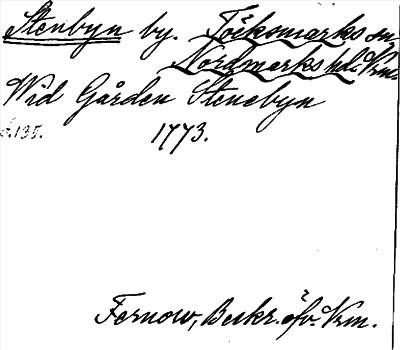 Stenbyn by. Töcksmarks sn
Nordmarks hd. Vrm.
Wid Gården Stenebyn
s.135. 1773.
Fernow, Beskr. öfv. Vrm.